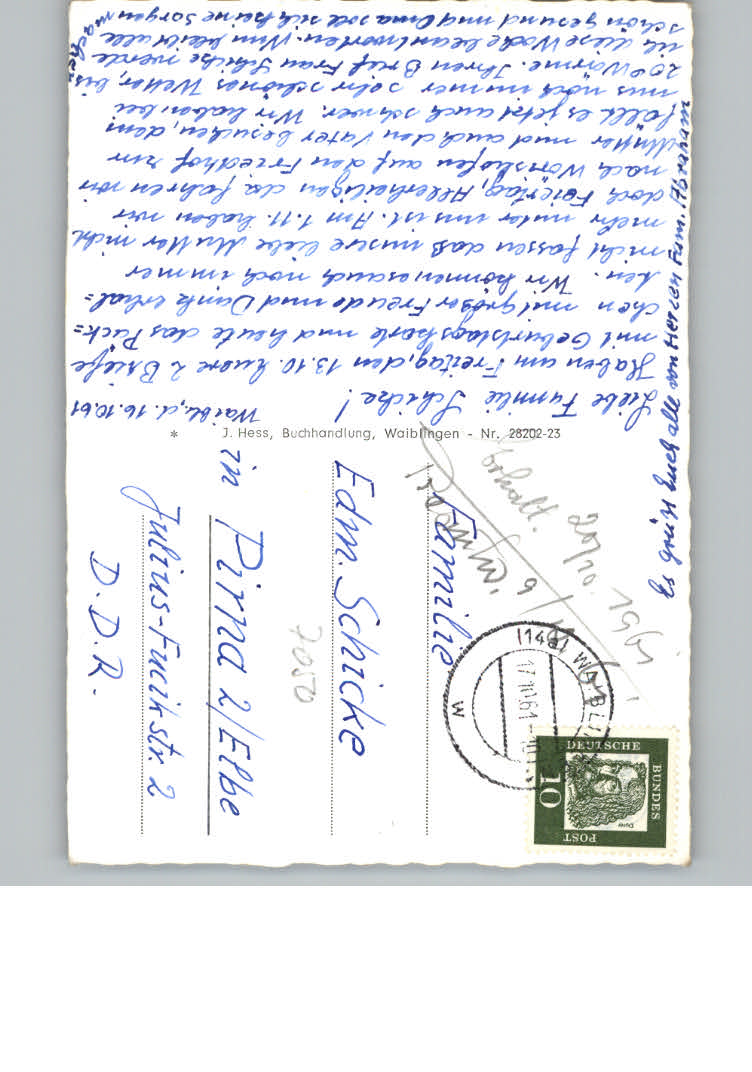 Waibli, d. 16.10.61
Liebe Familie Schicke!
Haben am Freitag, den 13.10. Euere 2 Briefe
mit Geburtstagskarte und heute das Päck=
chen mit großer Freude und Dank erhal=
ten. Wir können es auch noch immer
nicht fassen daß unsere liebe Mutter nicht
mehr unter uns ist. Am 1.11. haben wir
doch Feiertag, Allerheiligen, da fahren wir
nach auf den Friedhof zur
Mutter und auch den Vater besuchen, dem
fällt es jetzt auch schwer. Wir haben bei
uns noch immer sehr schönes Wetter, bis
20° Wärme. Ihren Brief Frau Schicke werde
ich diese Woche beantworten. Nun bleibt alle
schön gesund und Oma soll sich keine Sorgen
machen
Es grüßt Euch alle von Herzen Fam.
* J. Hess, Buchhandlung, Waiblingen - Nr. 28202-23
Familie
Edm. Schicke
in Pirna 2/Elbe
Julius-Fucik-str. 2
D.D.R.
7050
erhalt.
20/10. 1961
(14a) WAIBLINGEN
17.10.61
w
DEUTSCHE
BUNDES
POST
10
Dürer